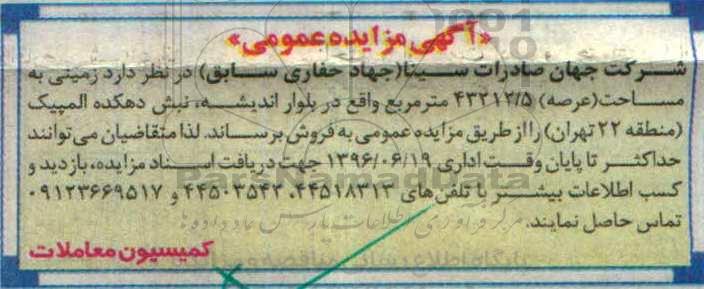 «آگهی مزایده عمومی»
شرکت جهان صادرات سینا(جهاد حفاری سابق) در نظر دارد زمینی به
مساحت(عرصه) ۴۳۲۱۲/۵ مترمربع واقع در بلوار اندیشه، نبش دهکده المپیک
(منطقه ۲۲ تهران) را از طریق مزایده عمومی به فروش برساند. لذا متقاضیان می‌توانند
حداکثر تا پایان وقت اداری ۱۳۹۶/۰۶/۱۹ جهت دریافت اسناد مزایده، بازدید و
کسب اطلاعات بیشتر با تلفن‌های ۴۴۵۱۸۳۱۳، ۴۴۵۰۳۵۴۲ و ۰۹۱۲۳۶۶۹۵۱۷
تماس حاصل نمایند.
کمیسیون معاملات
ParsNamadData